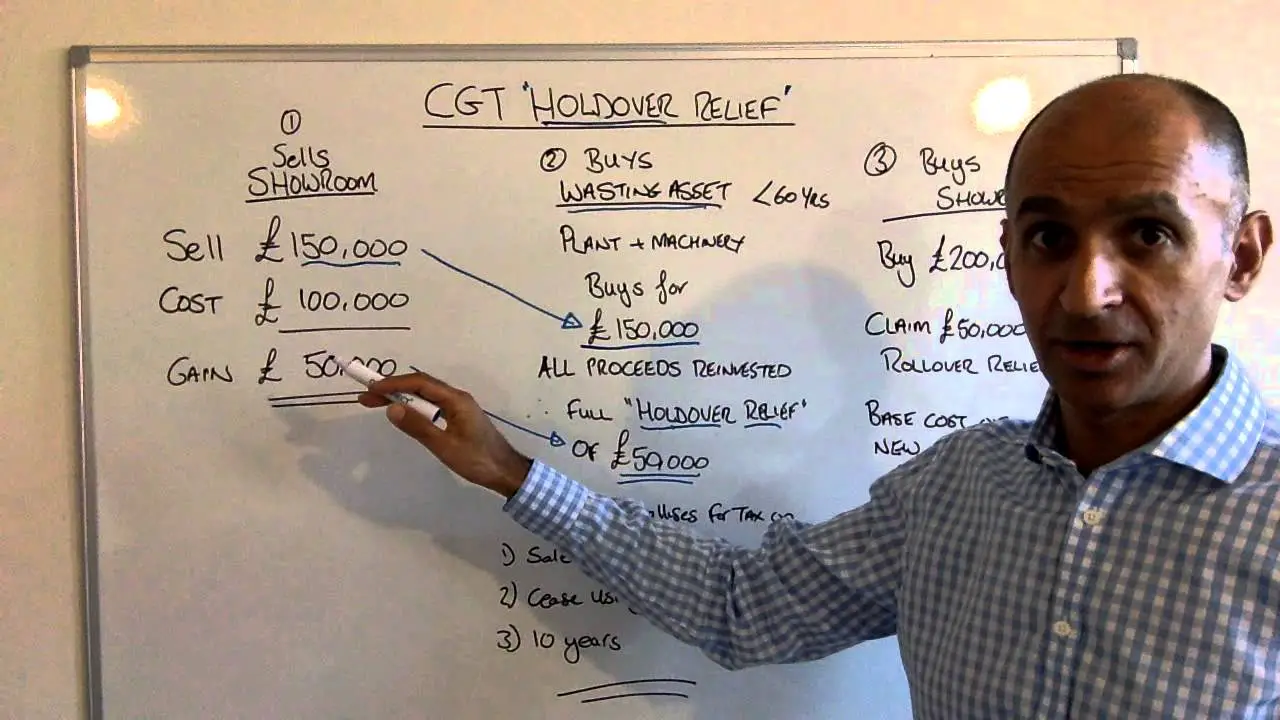 CGT 'HOLDOVER RELIEF'
①
Sells
SHOWROOM
Sell £150,000
COST £ 100,000
GAIN £ 50,000
② BUYS
WASTING ASSET <60 YRS
PLANT + MACHINERY
Buys for
£150,000
ALL PROCEEDS REINVESTED
∴ FULL "HOLDOVER RELIEF"
OF £50,000
for TAX on
1) Sale
2) Cease
3) 10 years
③ Buys
Buy
CLAIM £50,000
ROLLOVER
BASE COST
NEW